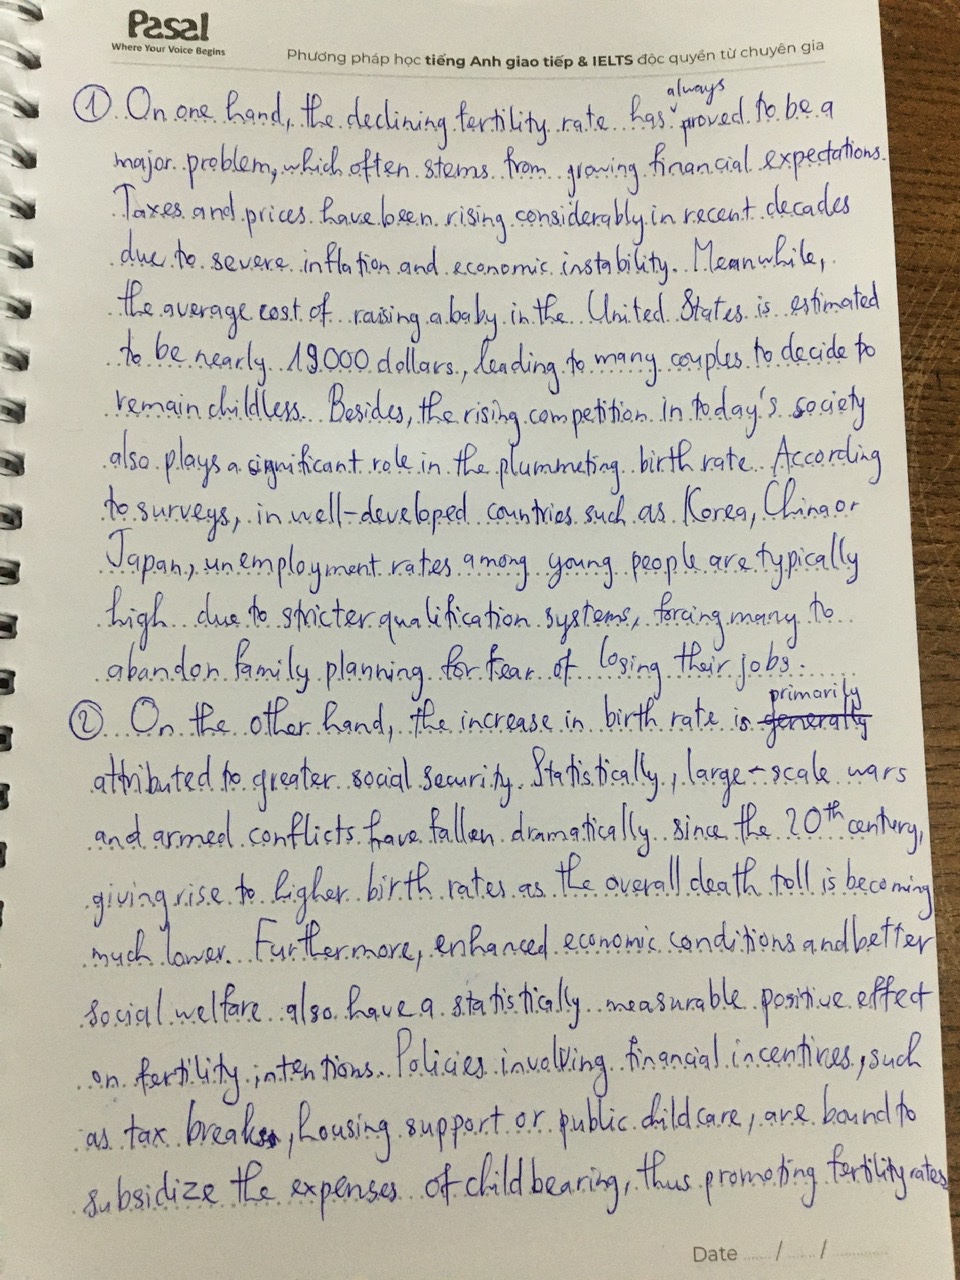 Pasal
Where Your Voice Begins
Phương pháp học tiếng Anh giao tiếp & IELTS độc quyền từ chuyên gia
always
① On one hand, the declining fertility rate has proved to be a
major problem, which often stems from growing financial expectations.
Taxes and prices have been rising considerably in recent decades
due to severe inflation and economic instability. Meanwhile,
the average cost of raising a baby in the United States is estimated
to be nearly 19.000 dollars, leading to many couples to decide to
remain childless. Besides, the rising competition in today's society
also plays a significant role in the plummeting birth rate. According
to surveys, in well-developed countries such as Korea, China or
Japan, unemployment rates among young people are typically
high due to stricter qualification systems, forcing many to
abandon family planning for fear of losing their jobs.
primarily
② On the other hand, the increase in birth rate is generally
attributed to greater social security. Statistically, large-scale wars
and armed conflicts have fallen dramatically since the 20th century,
giving rise to higher birth rates as the overall death toll is becoming
much lower. Furthermore, enhanced economic conditions and better
social welfare also have a statistically measurable positive effect
on fertility intentions. Policies involving financial incentives, such
as tax breaks, housing support or public childcare, are bound to
subsidize the expenses of childbearing, thus promoting fertility rates.
Date ...... / ...... / ............